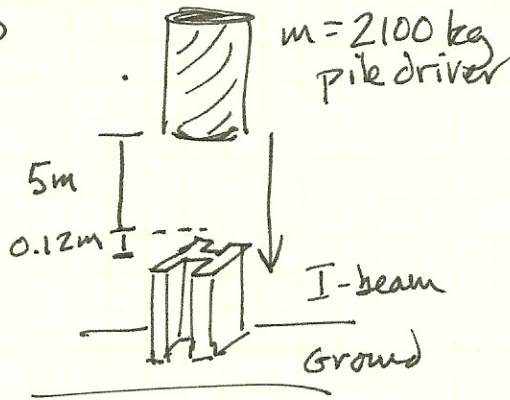 m = 2100 kg
pile driver
5m
0.12m
I-beam
Ground